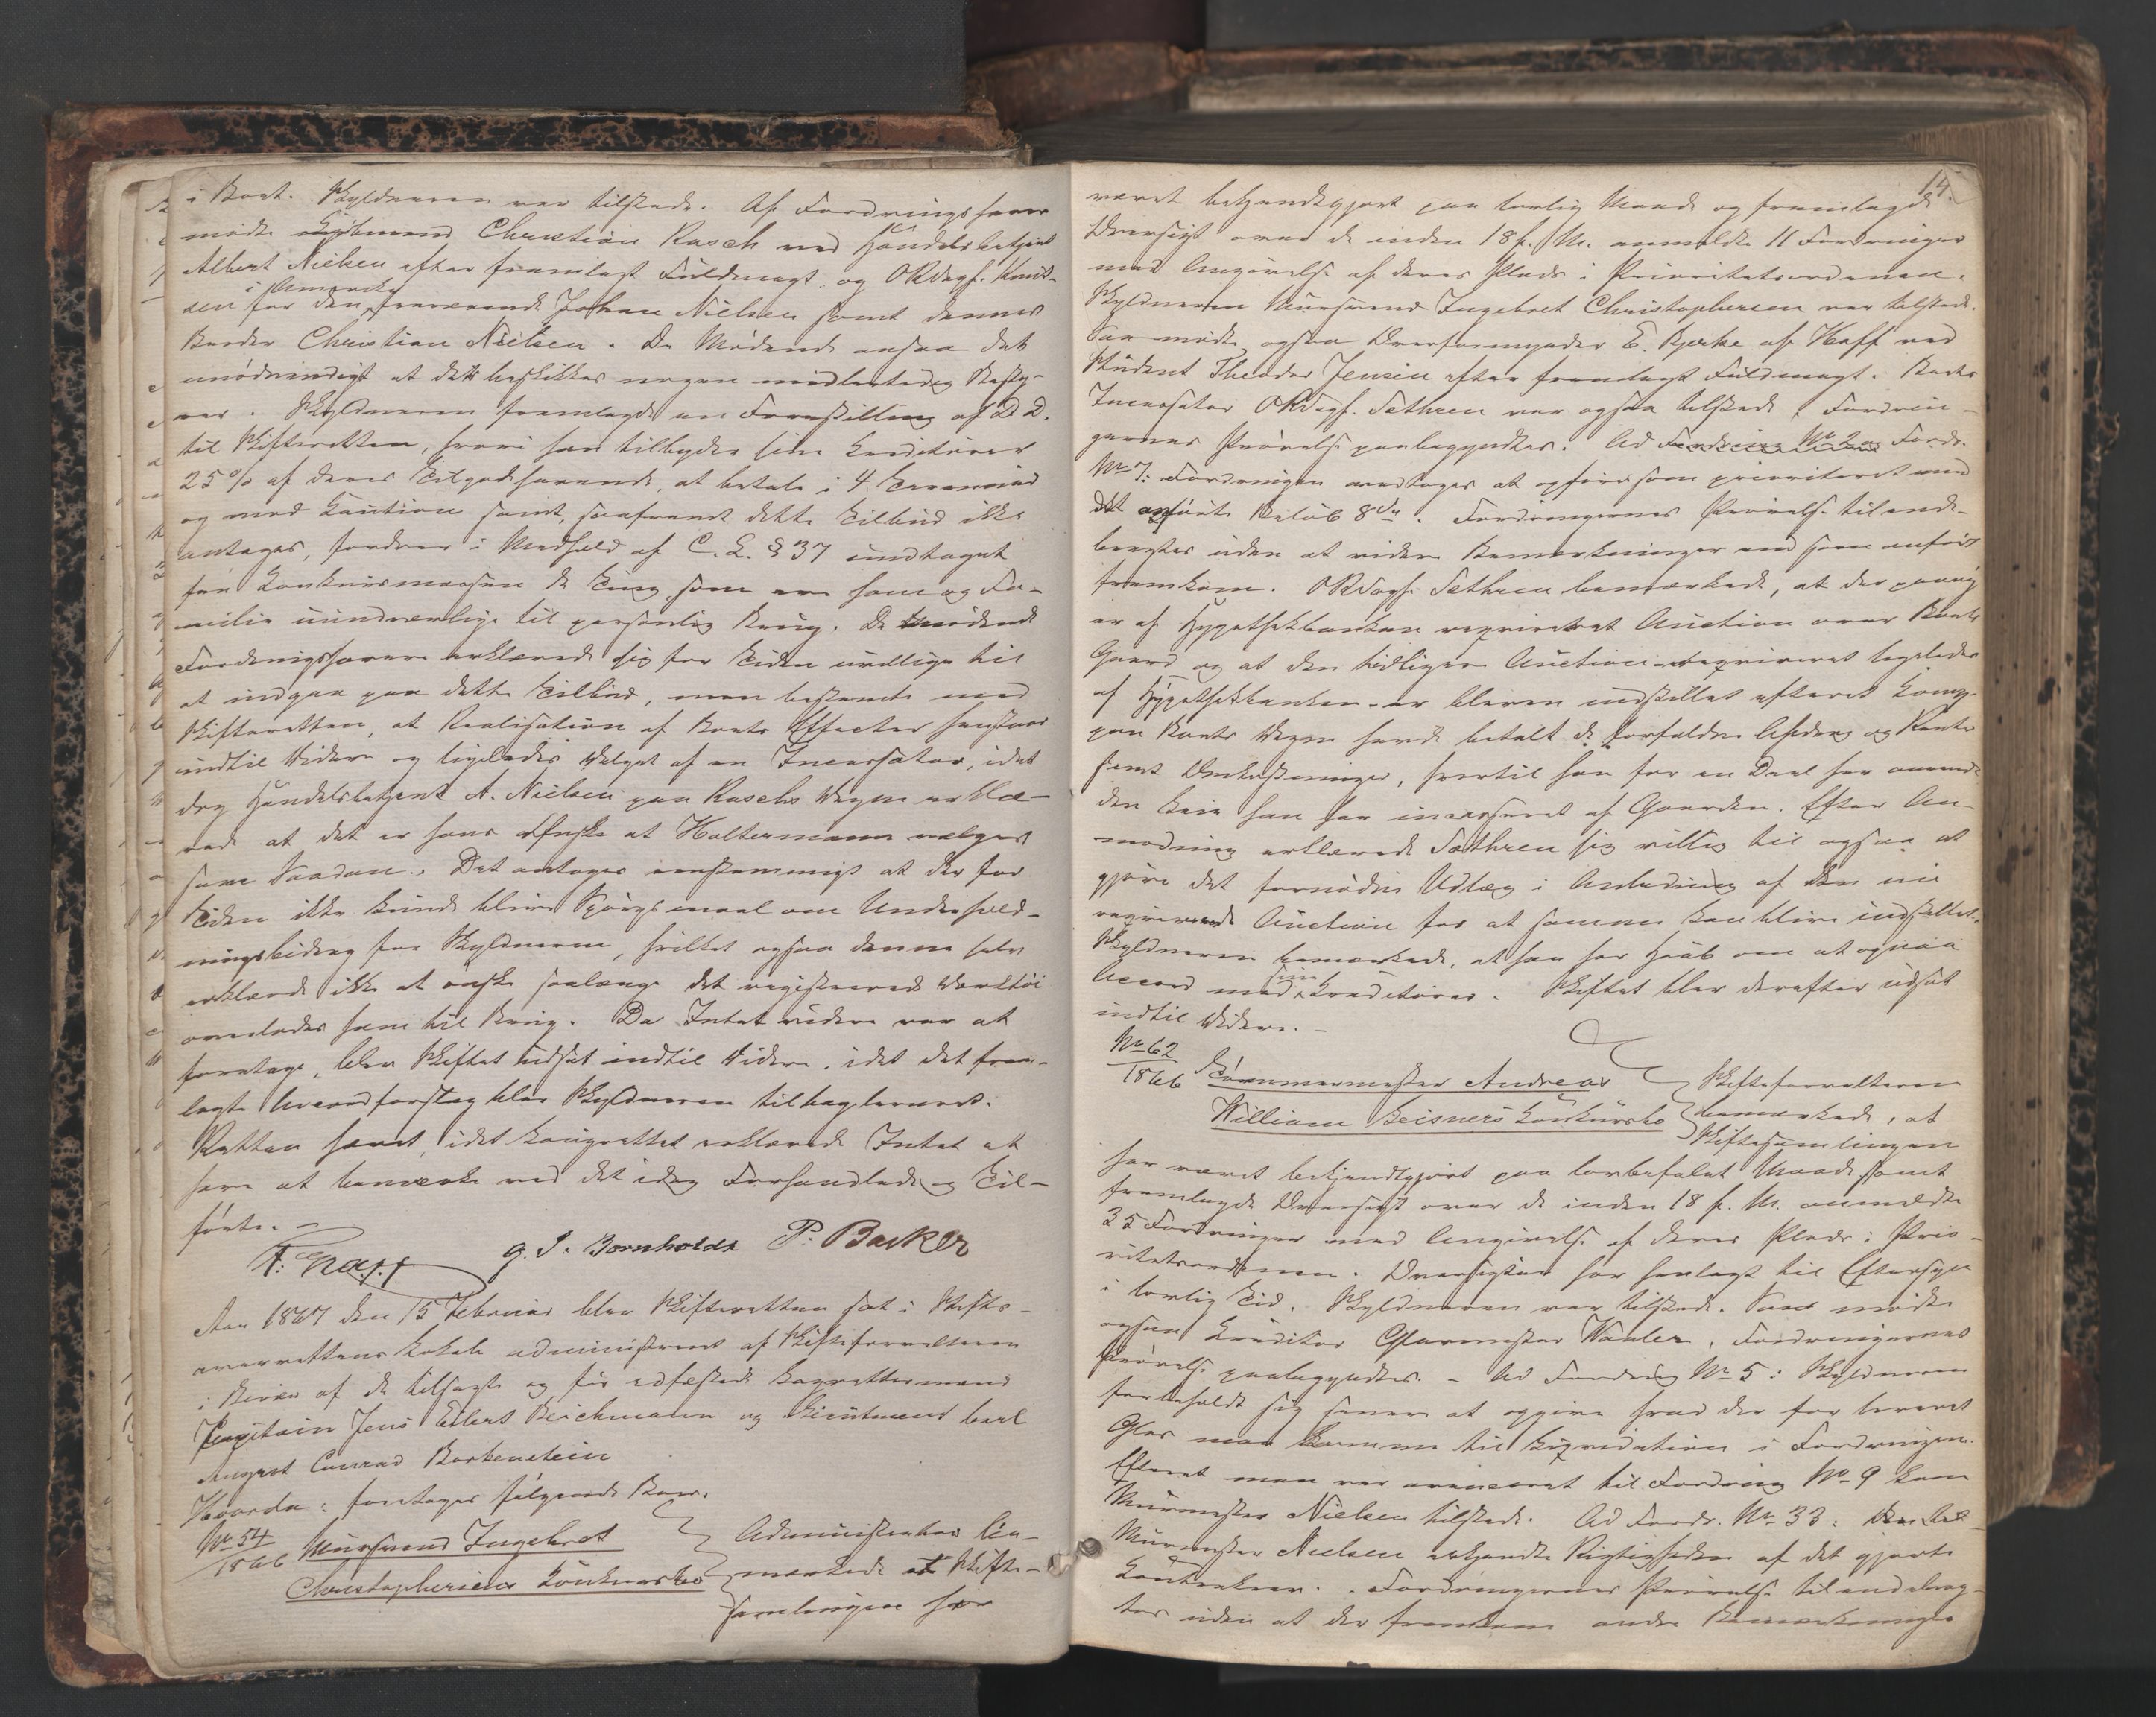 i Boet. Skyldneren var tilstede. Af Fordringshaver
mødte Kjøbmand Christian Rasch ved Handelsbetjent
Albert Nielsen efter fremlagt Fuldmagt og ORsagf. Knud-
sen for den i Amerika fraværende Johan Nielsen samt dennes
Broder Christian Nielsen. De Mødende ansaa det
unødvendigt at der beskikkes nogen midlertidig Besty-
rer. Skyldneren fremlagde en Forestilling af D. D.
til Skifteretten, hvori han tilbyder sine Kreditorer
25% af deres Tilgodehavende, at betale i 4 Terminer
og mod Kaution samt, saafremt dette Tilbud ikke
antages, fordrer i Medhold af C. L. § 37 undtaget
fra Konkursmassen de Ting som ere ham og Fa-
milie uundværlige til personlig Brug. De mødende
Fordringshavere erklærede sig for Tiden uvillige til
at indgaa paa dette Tilbud, men bestemte med
Skifteretten, at Realisation af Boets Effecter henstaar
indtil Videre og ligeledes Valget af en Incassator, idet
dog Handelsbetjent A. Nielsen paa Raschs Vegne erklæ-
rede at det er hans Ønske at Holtermann vælges
som Saadan. Det antoges eenstemmigt at der for
Tiden ikke kunde blive Spørgsmaal om Underhold-
ningsbidrag for Skyldneren, hvilket ogsaa denne selv
erklærede ikke at ønske saalænge det registrerede Værktøi
overlades ham til Brug. Da Intet videre var at
foretage, blev Skiftet udsat indtil Videre, idet det frem-
lagte Accordforslag blev Skyldneren tilbageleveret.
Retten hævet, idet Laugrettet erklærede Intet at
have at bemærke ved det idag Forhandlede og Til-
førte. –
G. S. Bornholdt P. Backer
Aar 1867 den 15 Februar blev Skifteretten sat i Stifts-
overrettens Lokale administreret af Skifteforvalteren
i Overvær af de tilsagte og før edfæstede Laugrettesmænd
Capitain Jens Eilert Beichmann og Lieutenant Carl
August Conrad Borkenstein
Hvorda: foretages følgende Boer.
No 54
1866 Muursvend Ingebret
Christophersens Konkursbo
Administrator be-
mærkede at Skifte-
samlingen har
14.
været bekjendtgjort paa lovlig Maade og fremlagde
Oversigt over de inden 18 f. M. anmeldte 11 Fordringer
med Angivelse af deres Plads i Prioritetsordenen.
Skyldneren Muursvend Ingebret Christophersen var tilstede.
Saa mødte ogsaa Overformynder E. Bjerke af Hoff ved
Student Theodor Jensen efter fremlagt Fuldmagt. Boets
Incassator ORsagf. Sethren var ogsaa tilstede. Fordrin-
gernes Prøvelse paabegyndtes. Ad Fordring No 2 og Fordr.
No 7: Fordringen vedtoges at opføres som prioriteret med
det anførte Beløb 8 Sk. Fordringernes Prøvelse tilende-
bragtes uden at videre Bemærkninger end som anført
fremkom. ORsagf. Sethren bemærkede, at der paany
er af Hypothekbanken requireret Auction over Boets
Gaard og at den tidligere Auction – requireret ligeledes
af Hypothekbanken – er bleven indstillet efterat Komp.
paa Boets Vegne havde betalt de forfaldne Afdrag og Rente
samt Omkostninger, hvortil han for en Deel har anvendt
den Leie han har incasseret af Gaarden. Efter An-
modning erklærede Sæthren sig villig til ogsaa at
gjøre det fornødne Udlæg i Anledning af den nu
requirerede Auction for at samme kan blive indstillet.
Skyldneren bemærkede, at han har Haab om at opnaa
Accord med sine Kreditorer. Skiftet blev derefter udsat
indtil Videre. –
No 62
1866 Tømmermester Andreas
William Geisners Konkursbo
Skifteforvalteren
bemærkede, at
Skiftesamlingen
har været bekjendtgjort paa lovbefalet Maade samt
fremlagde Oversigt over de inden 18 f. M. anmeldte
35 Fordringer med Angivelse af deres Plads i Prio-
ritetsordenen. Oversigten har henlagt til Eftersyn
i lovlig Tid. Skyldneren var tilstede. Saa mødte
ogsaa Kreditor Glarmester Wanler. Fordringernes
Prøvelse paabegyndtes. – Ad Fordring No 5: Skyldneren
forbeholdt sig senere at opgive hvad der for leveret
Glas maa komme til Liqvidation i Fordringen.
Efterat man var avanceret til Fordring No 9 kom
Muurmester Nielsen tilstede. Ad Fordr. No 33:
Muurmester Nielsen erkjendte Rigtigheden af det gjorte
Contrakrav. Fordringernes Prøvelse tilendebrag-
tes uden at der fremkom andre Bemærkninger